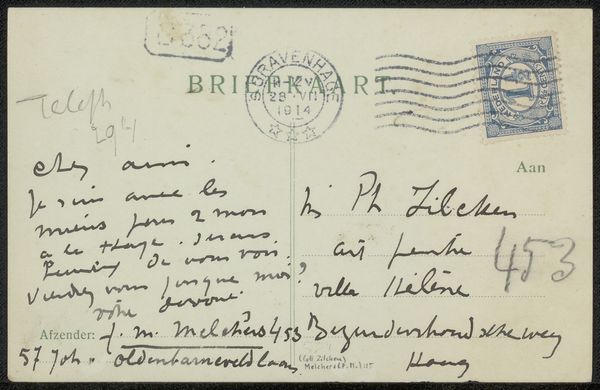 B 882
BRIEFKAART.
'S GRAVENHAGE
28 VII
1914
NEDERLAND
1
Teleph
294
Aan
cher ami.
Je suis avec les
miens pour 2 mois
a la Haye. Serais
heureux de vous voir.
Viendrez vous jusque moi?
votre dévoué.
Afzender: J. M. Melchers
57 Joh. Oldenbarneveldlaan
Mr Ph Zilcken
art peintre
villa Hélène
453 Bezuidenhoudscheweg
Haag
453
(Coll. Zilcken)
Melchers (F.M.) 115